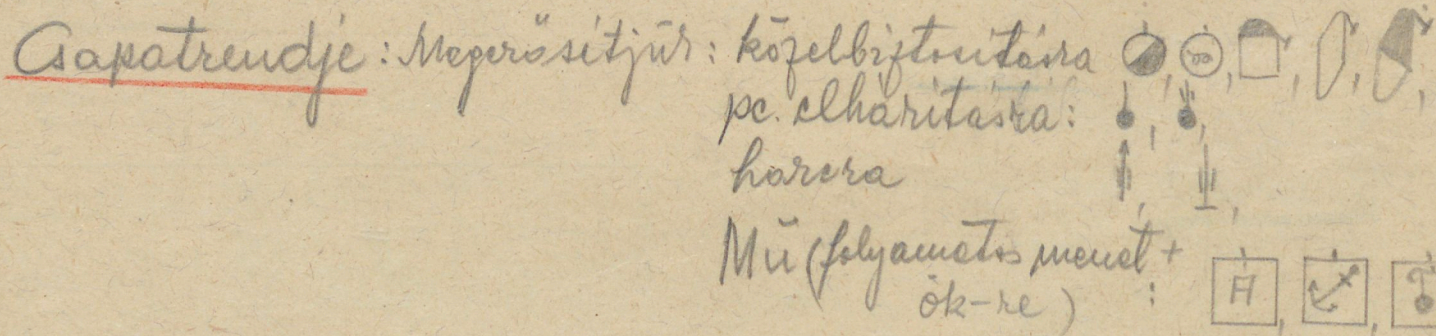 Csapatrendje: Megerősítjük: közelbiztosításra
pc. elhárításra:
harcra
Mü (folyamatos menet +
ök-re) :